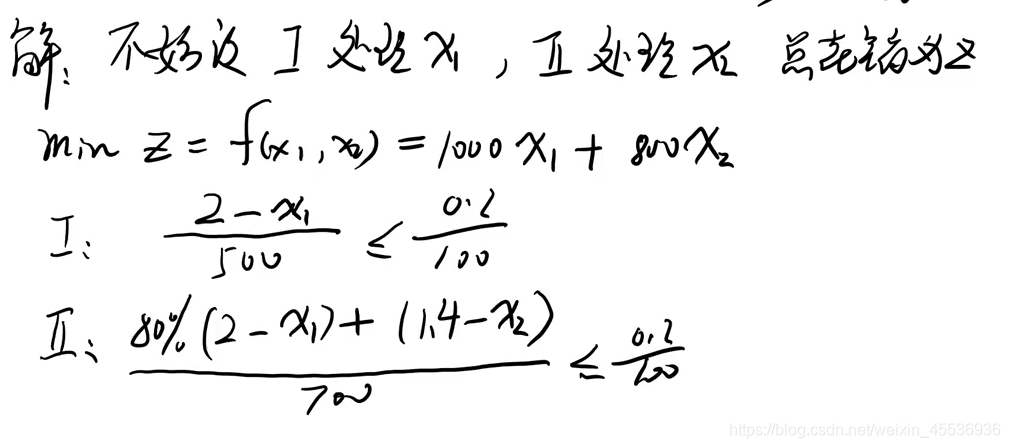 解: 不妨设 I 处理 x₁ , II 处理 x₂ 总花销为z
min z = f(x₁, x₂) = 1000 x₁ + 800 x₂
I: (2 - x₁)/500 ≤ 0.2/100
II: (80% (2 - x₁) + (1.4 - x₂))/700 ≤ 0.2/100
https://blog.csdn.net/weixin_45536936